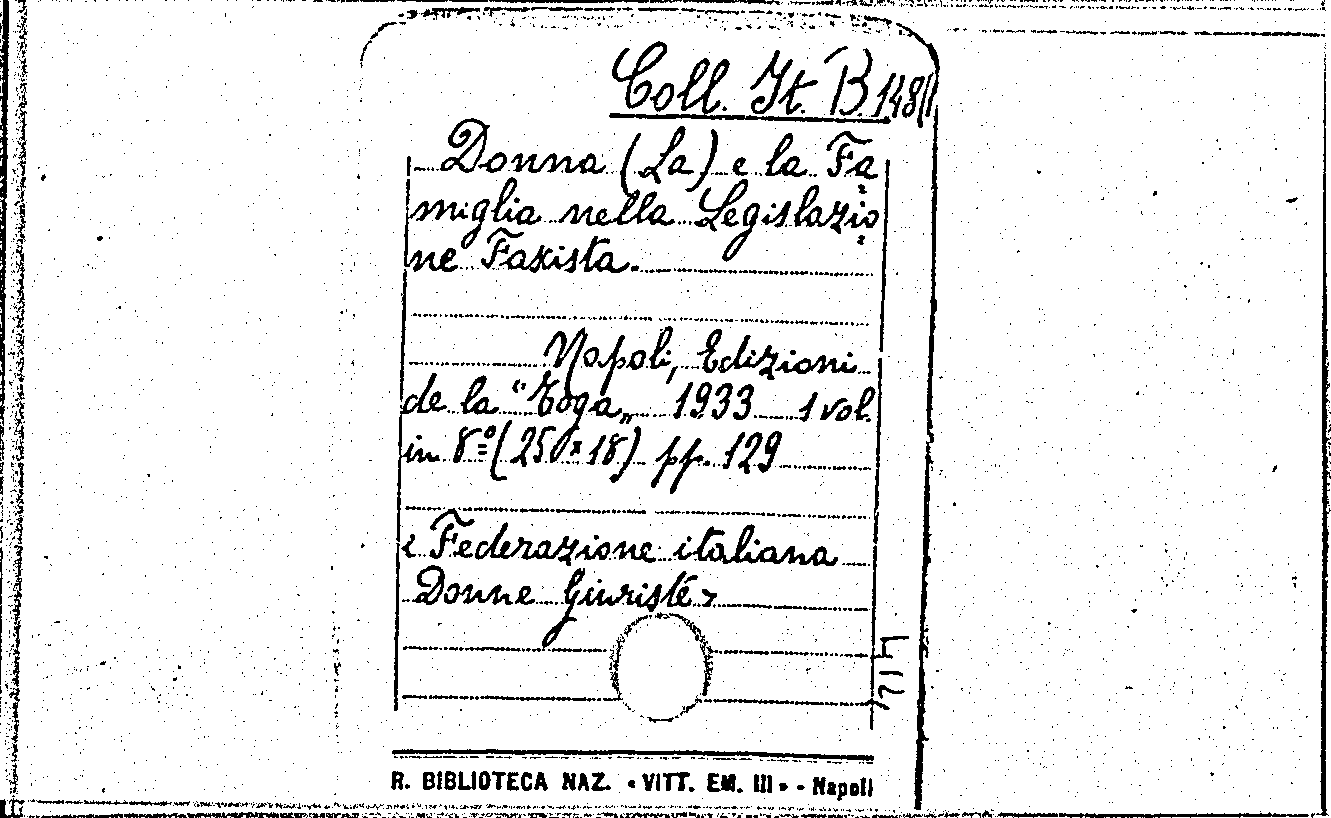 Coll. It. B. 148/1
Donna (La) e la Fa=
miglia nella Legislazio=
ne Faxista.
Napoli, Edizioni
de la "Toga„ 1933 1 vol.
in 8º (250x18) pp. 129
< Federazione italiana
Donne Giuriste >
R. BIBLIOTECA NAZ. «VITT. EM. III» - Napoli